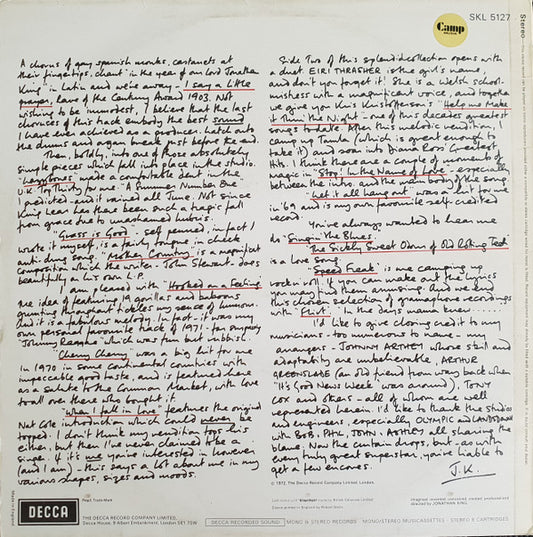 SKL 5127
Camp
A chorus of gay spanish monks, castanets at
their fingertips, chant "in the year of our Lord Jonathan
King" in Latin and we're away - I say a little
prayer, Rave of the Century Award 1903. Not
wishing to be immodest, I believe that the last
choruses of this track embody the best sound
I have ever achieved as a producer. Latch onto
the drums and organ break just before the end.
Then, boldly, into out of those absolutely
simple pieces which fall into place in the studio.
"Lazybones" made a comfortable dent in the
U.K. Top Thirty for me. "A Summer Number One"
I predicted - and it rained all June. Not since
King Lear has there been such a tragic fall
from grace due to unashamed hubris.
"Grass is Good", self penned, in fact I
wrote it myself, is a fairly tongue in cheek
anti-drug song. "Mother Country" is a magnificent
composition which the writer - John Stewart - does
beautifully on his own L.P.
I am pleased with "Hooked on a Feeling".
The idea of featuring 19 gorillas and baboons
grunting throughout tickles my sense of humour.
And it is a fabulous melody. In fact - it was my
own personal favourite track of 1971 - far surpassing
"Johnny Reggae" which was fun but rubbish.
"Cherry Cherry" was a big hit for me
in 1970 in some continental countries with
impeccable good taste, and is featured here
as a salute to the Common Market, with love
to all over there who bought it.
"When I fall in Love" features the original
Nat Cole introduction which could never be
topped. I don't think my rendition tops his
either, but then I've never claimed to be a
singer. If it's me you're interested in however
(and I am) - this says a lot about me in my
various shapes, sizes and moods.
Side Two of this splendid collection opens with
a duet. EIRI THRASHER is the girl's name,
and don't you forget it! She is a Welsh school-
mistress with a magnificent voice, and together
we give you Kris Kristofferson's "Help me Make
it Thru the Night" - one of this decades greatest
songs to date. After this melodic rendition, I
camp up Tamla (which is great enough to
take it) and soar into Diana Ross' Greatest
Hits. I think there are a couple of moments of
magic in "Stop! In the Name of Love" - especially
between the intro. and the main body of the song.
"Let it all hang out" was a hit for me
in '69 and is my own favourite self-credited
record.
You've always wanted to hear me
do "Singin' the Blues".
"The Sickly Sweet Odour of Old Rolling Teak"
is a love song.
"Speed Freak" is me camping up
rock n roll. If you can make out the lyrics
you may find them amusing. And we end
this chosen selection of gramophone recordings
with "Flirt". 'In the days mama knew.'
I'd like to give closing credit to my
musicians - too numerous to name - my
arrangers - JOHNNY ARTHEY whose skill and
adaptability are unbelievable, ARTHUR
GREENSLADE (an old friend from way back when
"It's Good News Week" was around), TONY
COX and others - all of whom are well
represented herein. I'd like to thank the studios
and engineers, especially OLYMPIC and LANSDOWNE
with BOB, PHIL, JOHN, ASHLEY all sharing the
blame. Now the curtain drops, but - as with
every truly great superstar, you're liable to
get a few encores.
J.K.
© 1972, The Decca Record Company Limited, London.
Made in England
DECCA
Regd. Trade Mark
THE DECCA RECORD COMPANY LIMITED,
Decca House, 9 Albert Embankment, London SE1 7SW
DECCA RECORDED SOUND
MONO & STEREO RECORDS
MONO/STEREO MUSICASSETTES
STEREO 8 CARTRIDGES
directed by JONATHAN KING
Stereo